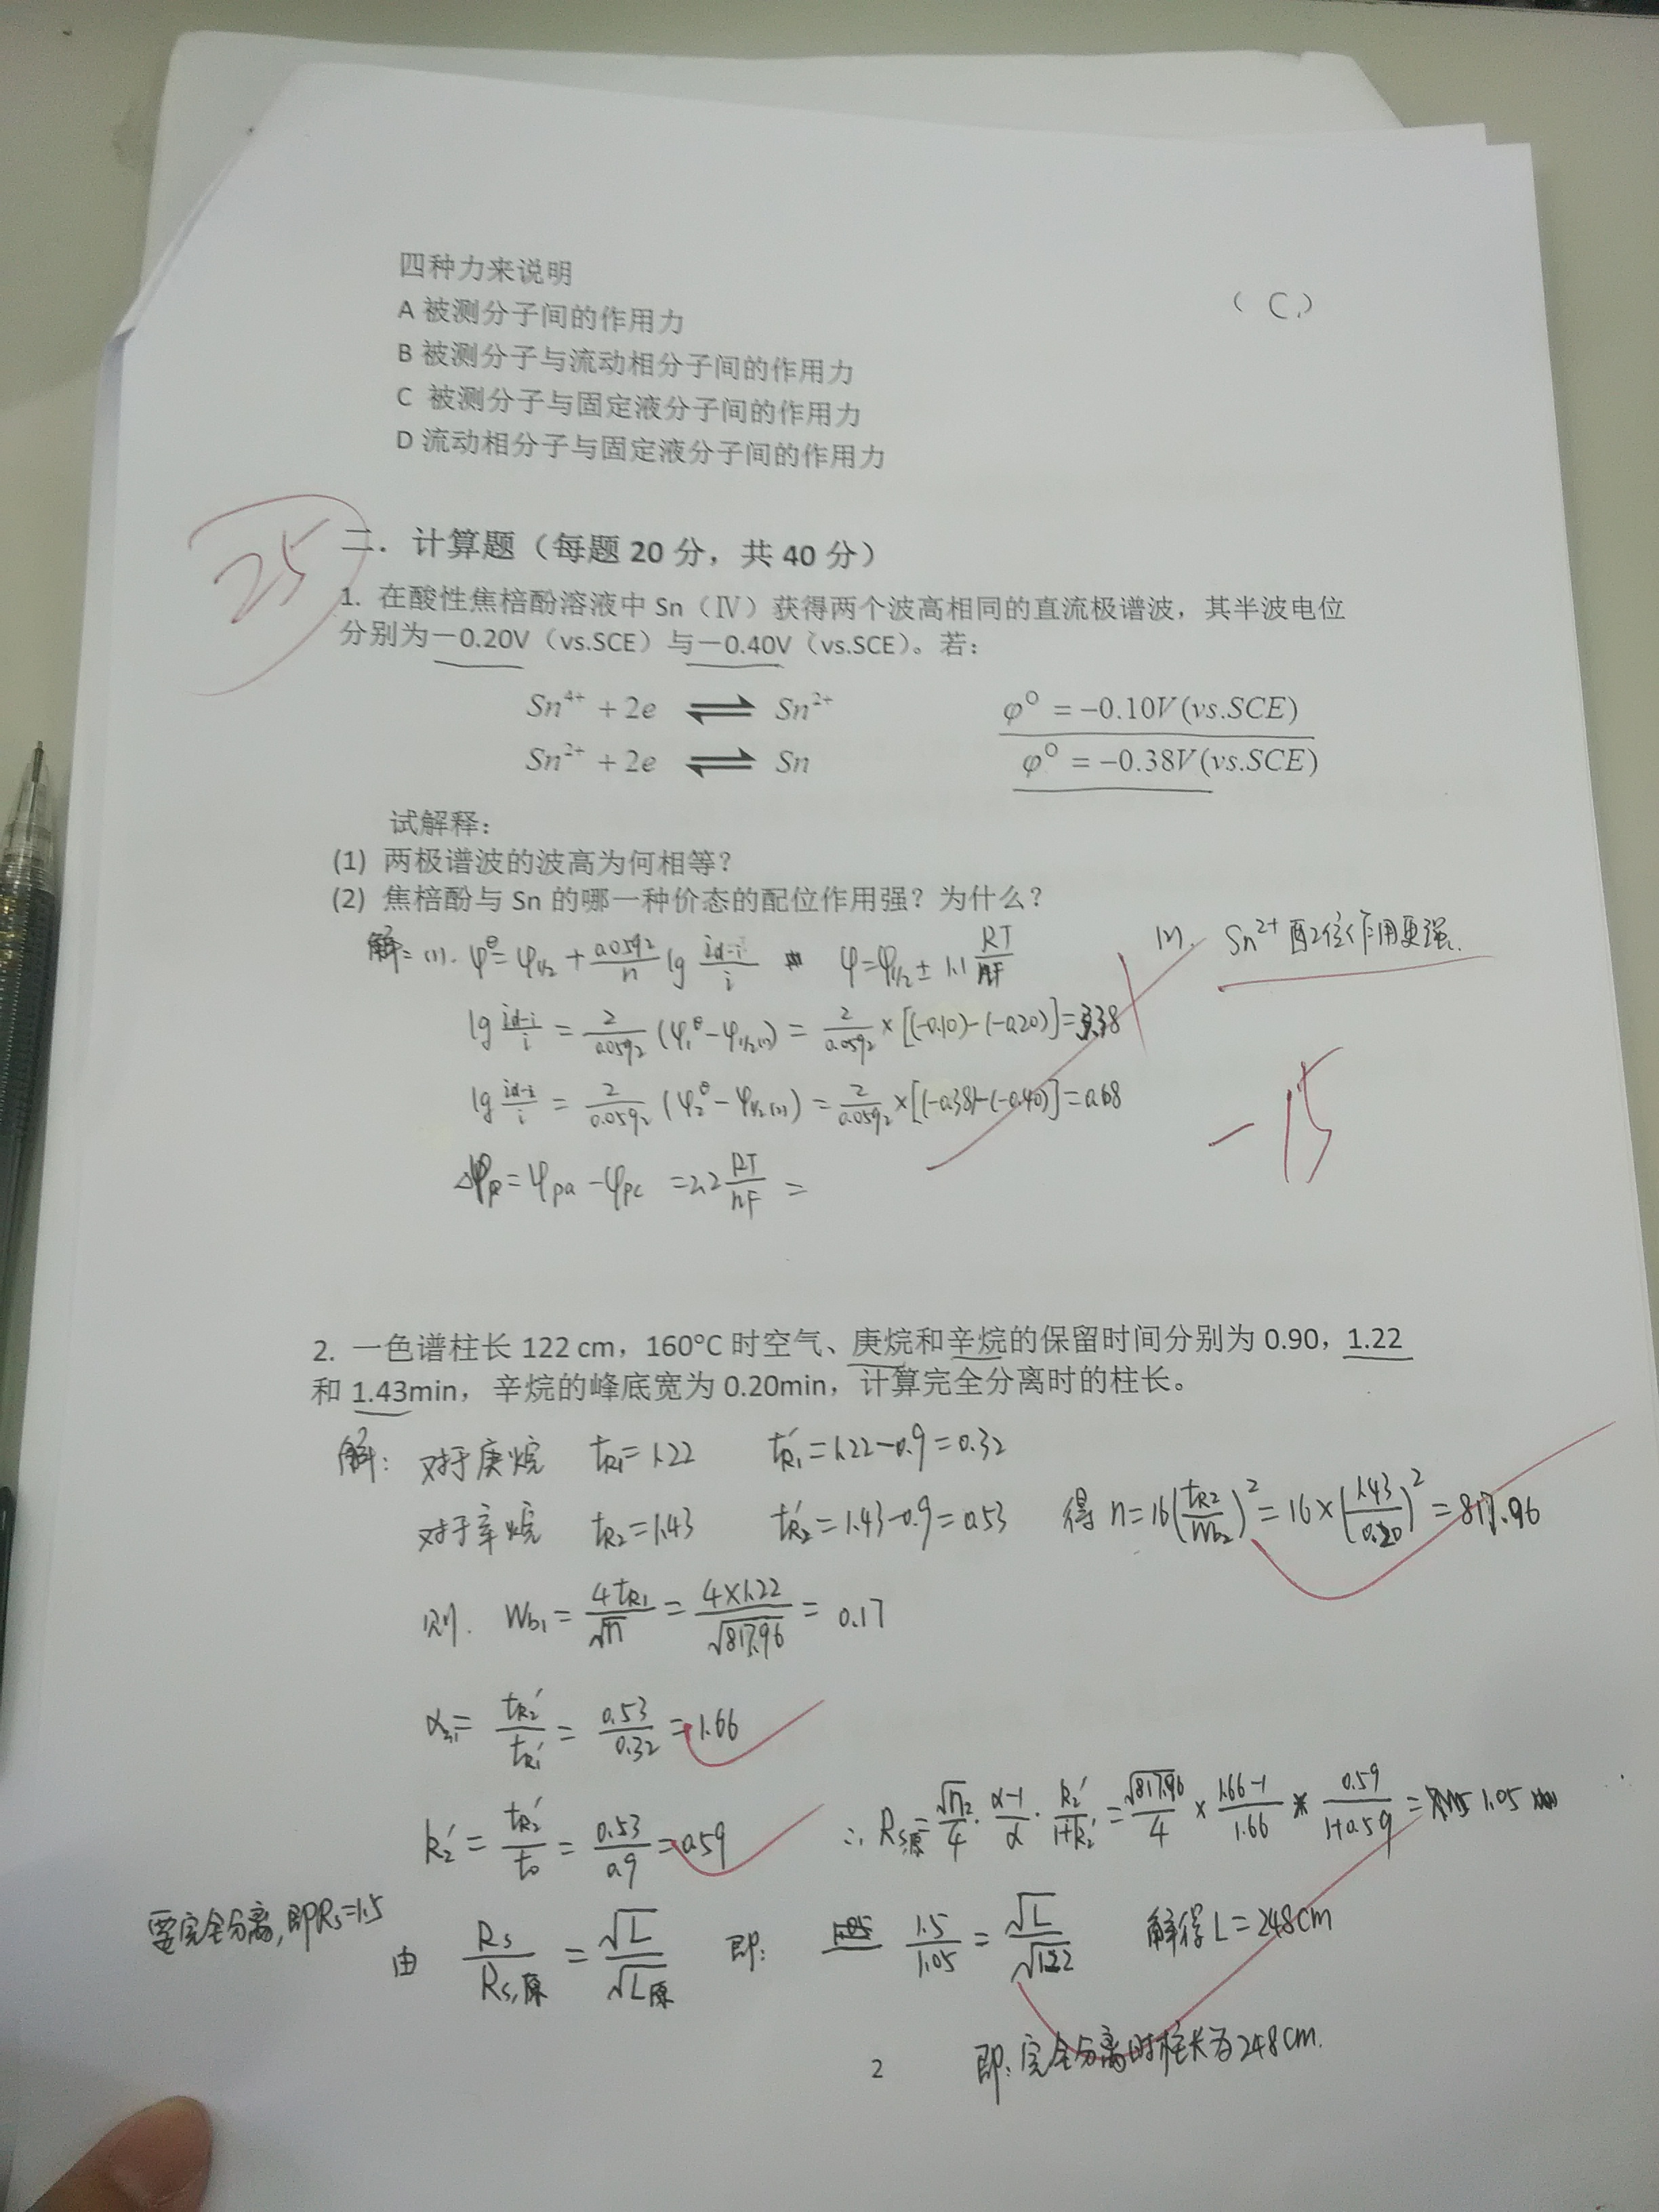 四种力来说明
(C)
A 被测分子间的作用力
B 被测分子与流动相分子间的作用力
C 被测分子与固定液分子间的作用力
D 流动相分子与固定液分子间的作用力
25
二. 计算题（每题 20 分，共 40 分）
1. 在酸性焦棓酚溶液中 Sn（Ⅳ）获得两个波高相同的直流极谱波，其半波电位
分别为－0.20V（vs.SCE）与－0.40V（vs.SCE）。若：
Sn⁴⁺ + 2e ⇌ Sn²⁺ φ⁰ = −0.10V(vs.SCE)
Sn²⁺ + 2e ⇌ Sn φ⁰ = −0.38V(vs.SCE)
试解释：
(1) 两极谱波的波高为何相等？
(2) 焦棓酚与 Sn 的哪一种价态的配位作用强？为什么？
解: (1). φ^θ = φ1/2 + 0.0592/n lg (id-i)/i φ = φ1/2 ± 1.1 RT/nF
(2). Sn²⁺配位作用更强.
lg (id-i)/i = 2/0.0592 (φ1^θ - φ1/2(1)) = 2/0.0592 × [(-0.10)-(-0.20)] = 3.38
lg (id-i)/i = 2/0.0592 (φ2^θ - φ1/2(2)) = 2/0.0592 × [(-0.38)-(-0.40)] = 0.68
-15
Δφp = φpa - φpc = 2.2 RT/nF =
2. 一色谱柱长 122 cm，160°C 时空气、庚烷和辛烷的保留时间分别为 0.90，1.22
和 1.43min，辛烷的峰底宽为 0.20min，计算完全分离时的柱长。
解: 对于庚烷 tR1=1.22 tR1'=1.22-0.9=0.32
对于辛烷 tR2=1.43 tR2'=1.43-0.9=0.53 得 n=16(tR2/Wb2)²=16×(1.43/0.20)²=817.96
则. Wb1 = 4tR1/√n = 4×1.22/√817.96 = 0.17
α2,1 = tR2'/tR1' = 0.53/0.32 = 1.66
k2' = tR2'/t0 = 0.53/0.9 = 0.59 ∴ Rs原 = √n2/4 · (α-1)/α · k2'/(1+k2') = √817.96/4 × (1.66-1)/1.66 × 0.59/(1+0.59) = 1.05
要完全分离, 即Rs=1.5
由 Rs/Rs,原 = √L/√L原 即: 1.5/1.05 = √L/√122 解得 L=248cm
即: 完全分离时柱长为248cm.
2